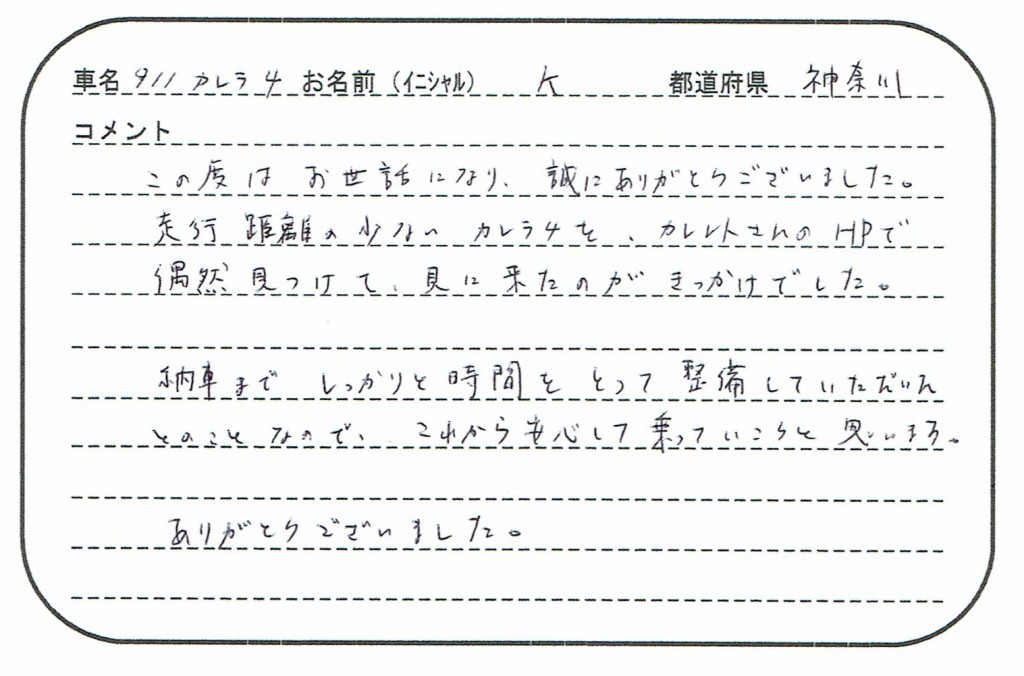 車名 911 カレラ4 お名前(イニシャル) K 都道府県 神奈川
コメント
この度は お世話になり、誠にありがとうございました。
走行距離の少ない カレラ4を、カレントさんのHPで
偶然見つけて、見に来たのが きっかけでした。
納車まで しっかりと時間をとって 整備していただいた
とのことなので、これから安心して乗っていこうと思います。
ありがとうございました。